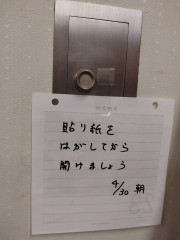 貼り紙を
はがしてから
開けましょう
4/30 朝